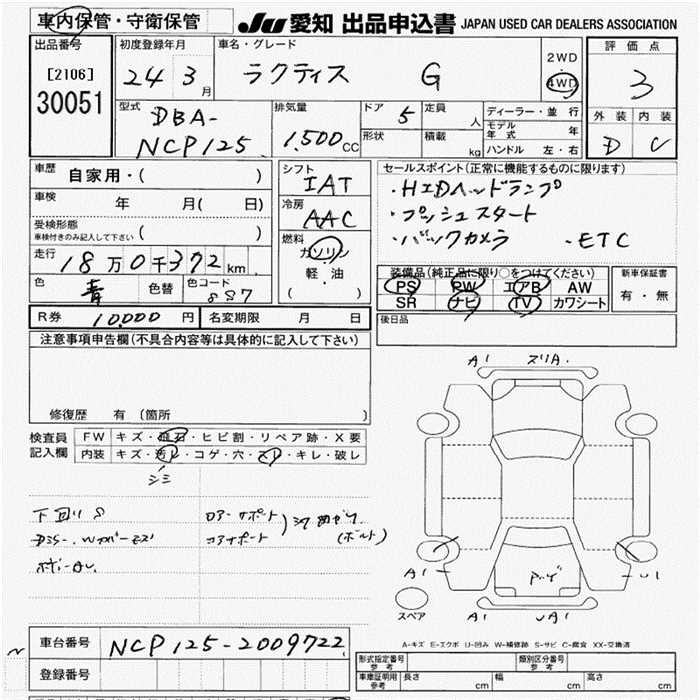 車内保管・守衛保管
JU 愛知 出品申込書 JAPAN USED CAR DEALERS ASSOCIATION
出品番号
[2106]
30051
初度登録年月
24 3 月
車名・グレード
ラクティス G
2WD
・
4WD
評価点
3
外装 内装
D C
型式
DBA-
NCP125
排気量
1.500 CC
ドア 5
形状
定員 人
積載 kg
ディーラー・並行
モデル年式 年
ハンドル 左・右
車歴
自家用・( )
車検
年 月( 日)
受検形態
車検付きのみ記入して下さい ( )
走行
18万0千372 km
色
青
色替
色コード
8S7
シフト
IAT
冷房
AAC
燃料
ガソリン
軽・油
( )
セールスポイント(正常に機能するものに限ります)
・HIDヘッドランプ
・プッシュスタート
・バックカメラ ・ETC
装備品(純正品に限り○をつけてください)
PS PW エアB AW
SR ナビ TV カワシート
新車保証書
有・無
後日品
R券 10,000 円
名変期限 月 日
注意事項申告欄(不具合内容等は具体的に記入して下さい)
修復歴 有 (箇所 )
検査員
記入欄
FW キズ・飛石・ヒビ割・リペア跡・X要
内装 キズ・汚レ・コゲ・穴・スレ・キレ・破レ
シミ
下回りS
ロアーサポート
コアサポート
(ボルト)
A1 スリA.
A1
U1
A1 UA1
スペア
A-キズ E-エクボ U-凹み W-補修跡 S-サビ C-腐食 XX-交換済
車台番号 NCP125-2009722
登録番号
型式指定番号
参考
類別区分番号
参考
車庫証明用
参考
長さ cm 幅 cm 高さ cm